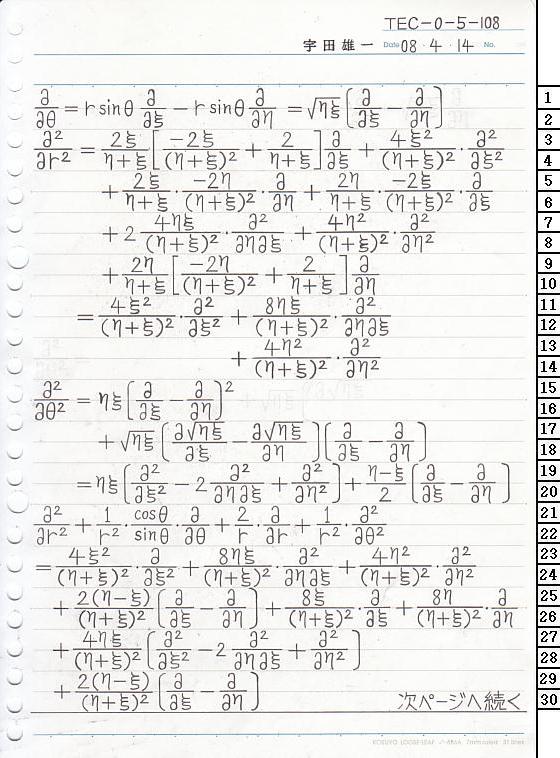 TEC-0-5-108
宇田雄一 Date 08・4・14 No.
∂/∂θ = r sinθ ∂/∂ξ − r sinθ ∂/∂η = √ηξ [∂/∂ξ − ∂/∂η]
∂²/∂r² = 2ξ/(η+ξ) [−2ξ/(η+ξ)² + 2/(η+ξ)] ∂/∂ξ + 4ξ²/(η+ξ)² · ∂²/∂ξ²
+ 2ξ/(η+ξ) · −2η/(η+ξ)² · ∂/∂η + 2η/(η+ξ) · −2ξ/(η+ξ)² · ∂/∂ξ
+ 2 4ηξ/(η+ξ)² · ∂²/∂η∂ξ + 4η²/(η+ξ)² · ∂²/∂η²
+ 2η/(η+ξ) [−2η/(η+ξ)² + 2/(η+ξ)] ∂/∂η
= 4ξ²/(η+ξ)² · ∂²/∂ξ² + 8ηξ/(η+ξ)² · ∂²/∂η∂ξ
+ 4η²/(η+ξ)² · ∂²/∂η²
∂²/∂θ² = ηξ [∂/∂ξ − ∂/∂η]²
+ √ηξ [∂√ηξ/∂ξ − ∂√ηξ/∂η] [∂/∂ξ − ∂/∂η]
= ηξ [∂²/∂ξ² − 2 ∂²/∂η∂ξ + ∂²/∂η²] + (η−ξ)/2 [∂/∂ξ − ∂/∂η]
∂²/∂r² + 1/r² · cosθ/sinθ · ∂/∂θ + 2/r · ∂/∂r + 1/r² · ∂²/∂θ²
= 4ξ²/(η+ξ)² · ∂/∂ξ² + 8ηξ/(η+ξ)² · ∂²/∂η∂ξ + 4η²/(η+ξ)² · ∂²/∂η²
+ 2(η−ξ)/(η+ξ)² [∂/∂ξ − ∂/∂η] + 8ξ/(η+ξ)² · ∂/∂ξ + 8η/(η+ξ)² · ∂/∂η
+ 4ηξ/(η+ξ)² [∂²/∂ξ² − 2 ∂²/∂η∂ξ + ∂²/∂η²]
+ 2(η−ξ)/(η+ξ)² [∂/∂ξ − ∂/∂η]
次ページへ続く
KOKUYO LOOSE-LEAF ノ-836A 7mm ruled 31 lines
1
2
3
4
5
6
7
8
9
10
11
12
13
14
15
16
17
18
19
20
21
22
23
24
25
26
27
28
29
30